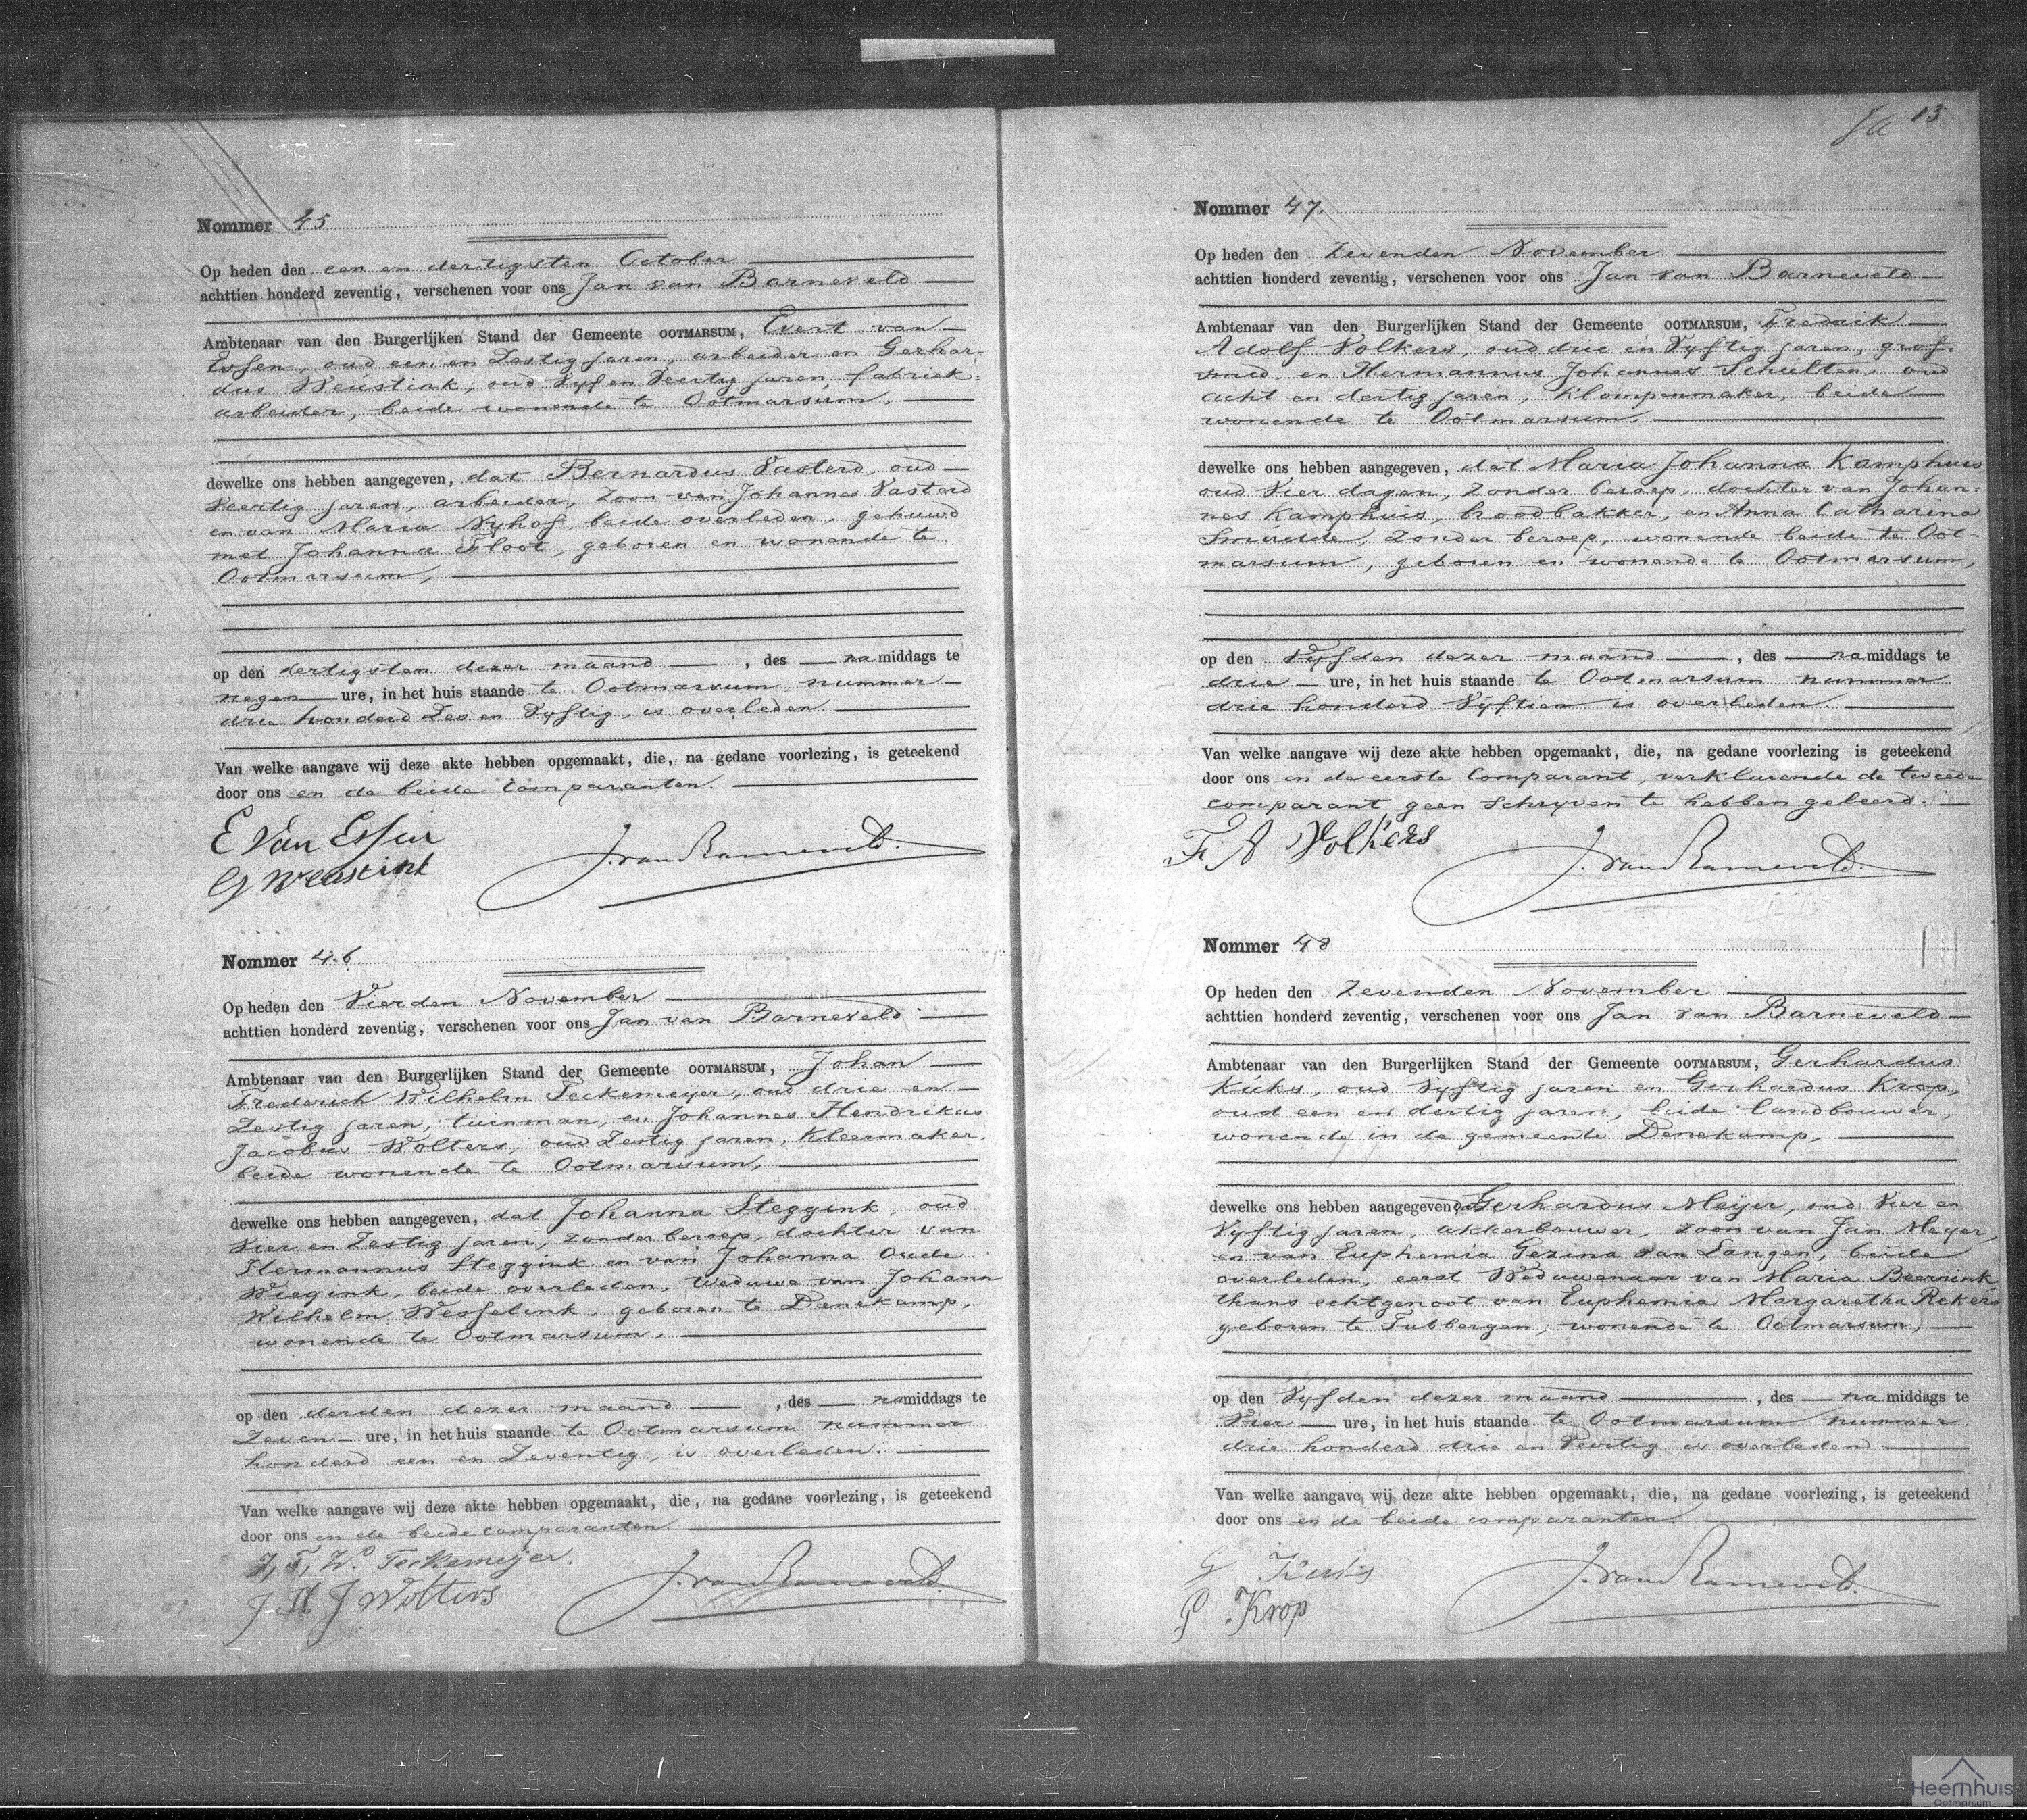 Nommer 45
Op heden den een en dertigsten October
achttien honderd zeventig, verschenen voor ons Jan van Barneveld
Ambtenaar van den Burgerlijken Stand der Gemeente OOTMARSUM, Evert van
Essen, oud een en Zestig jaren, arbeider en Gerhar-
dus Weustink, oud Vyf en Veertig jaren fabriek-
arbeider, beide wonende te Ootmarsum,
dewelke ons hebben aangegeven, dat Bernardus Vasterd, oud
Veertig jaren, arbeider, Zoon van Johannes Vasterd
en van Maria Nyhof, beide overleden, gehuwd
met Johanna Floot, geboren en wonende te
Ootmarsum,
op den dertigsten dezer maand, des namiddags te
negen ure, in het huis staande te Ootmarsum nummer
drie honderd Zes en Vyftig, is overleden.
Van welke aangave wij deze akte hebben opgemaakt, die, na gedane voorlezing, is geteekend
door ons en de beide Comparanten.
E Van Essen
G Weustink
J. van Barneveld.
Nommer 46.
Op heden den Vierden November
achttien honderd zeventig, verschenen voor ons Jan van Barneveld
Ambtenaar van den Burgerlijken Stand der Gemeente OOTMARSUM, Johan
Frederich Wilhelm Feckemeyer, oud drie en
Zestig jaren, tuinman, en Johannes Hendrikus
Jacobus Wolters, oud Zestig jaren, Kleermaker,
beide wonende te Ootmarsum,
dewelke ons hebben aangegeven, dat Johanna Steggink, oud
Vier en Zestig jaren, zonder beroep, dochter van
Hermannus Steggink en van Johanna Oude
Wiegink, beide overleden, Weduwe van Johann
Wilhelm Wesselink, geboren te Denekamp,
wonende te Ootmarsum,
op den derden dezer maand, des namiddags te
Zeven ure, in het huis staande te Ootmarsum nummer
honderd een en Zeventig, is overleden.
Van welke aangave wij deze akte hebben opgemaakt, die, na gedane voorlezing, is geteekend
door ons en de beide comparanten.
J, F, W. Feckemeijer.
J H J Wolters
J. van Barneveld.
13
Nommer 47.
Op heden den Zevenden November
achttien honderd zeventig, verschenen voor ons Jan van Barneveld
Ambtenaar van den Burgerlijken Stand der Gemeente OOTMARSUM, Fredrik
Adolf Volkers, oud drie en Vyftig jaren, grof-
smid en Hermannus Johannes Schulten, oud
acht en dertig jaren, Klompenmaker, beide
wonende te Ootmarsum,
dewelke ons hebben aangegeven, dat Maria Johanna Kamphuis
oud Vier dagen, zonder beroep, dochter van Johan-
nes Kamphuis, broodbakker, en Anna Catharina
Smudde, Zonder beroep, wonende beide te Oot-
marsum, geboren en wonende te Ootmarsum,
op den Vyfden dezer maand, des namiddags te
drie ure, in het huis staande te Ootmarsum nummer
drie honderd Vyftien is overleden.
Van welke aangave wij deze akte hebben opgemaakt, die, na gedane voorlezing is geteekend
door ons en de eerste Comparant, verklarende de tweede
comparant geen schryven te hebben geleerd.
F A Volkers
J. van Barneveld.
Nommer 48
Op heden den Zevenden November
achttien honderd zeventig, verschenen voor ons Jan van Barneveld
Ambtenaar van den Burgerlijken Stand der Gemeente OOTMARSUM, Gerhardus
Kuiks, oud Vyftig jaren en Gerhardus Krop,
oud een en dertig jaren, beide landbouwer,
wonende in de gemeente Denekamp,
dewelke ons hebben aangegeven, dat Gerhardus Meijer, oud Vier en
Vyftig jaren, akkerbouwer, zoon van Jan Meyer,
en van Euphemia Gezina van Langen, beide
overleden, eerst Weduwenaar van Maria Beernink
thans echtgenoot van Euphemia Margaretha Rekers
geboren te Tubbergen, wonende te Ootmarsum,
op den Vyfden dezer maand, des namiddags te
Vier ure, in het huis staande te Ootmarsum nummer
drie honderd drie en Veertig is overleden
Van welke aangave wij deze akte hebben opgemaakt, die, na gedane voorlezing, is geteekend
door ons en de beide comparanten.
G
G Krop
J. van Barneveld.
Heemhuis
Ootmarsum